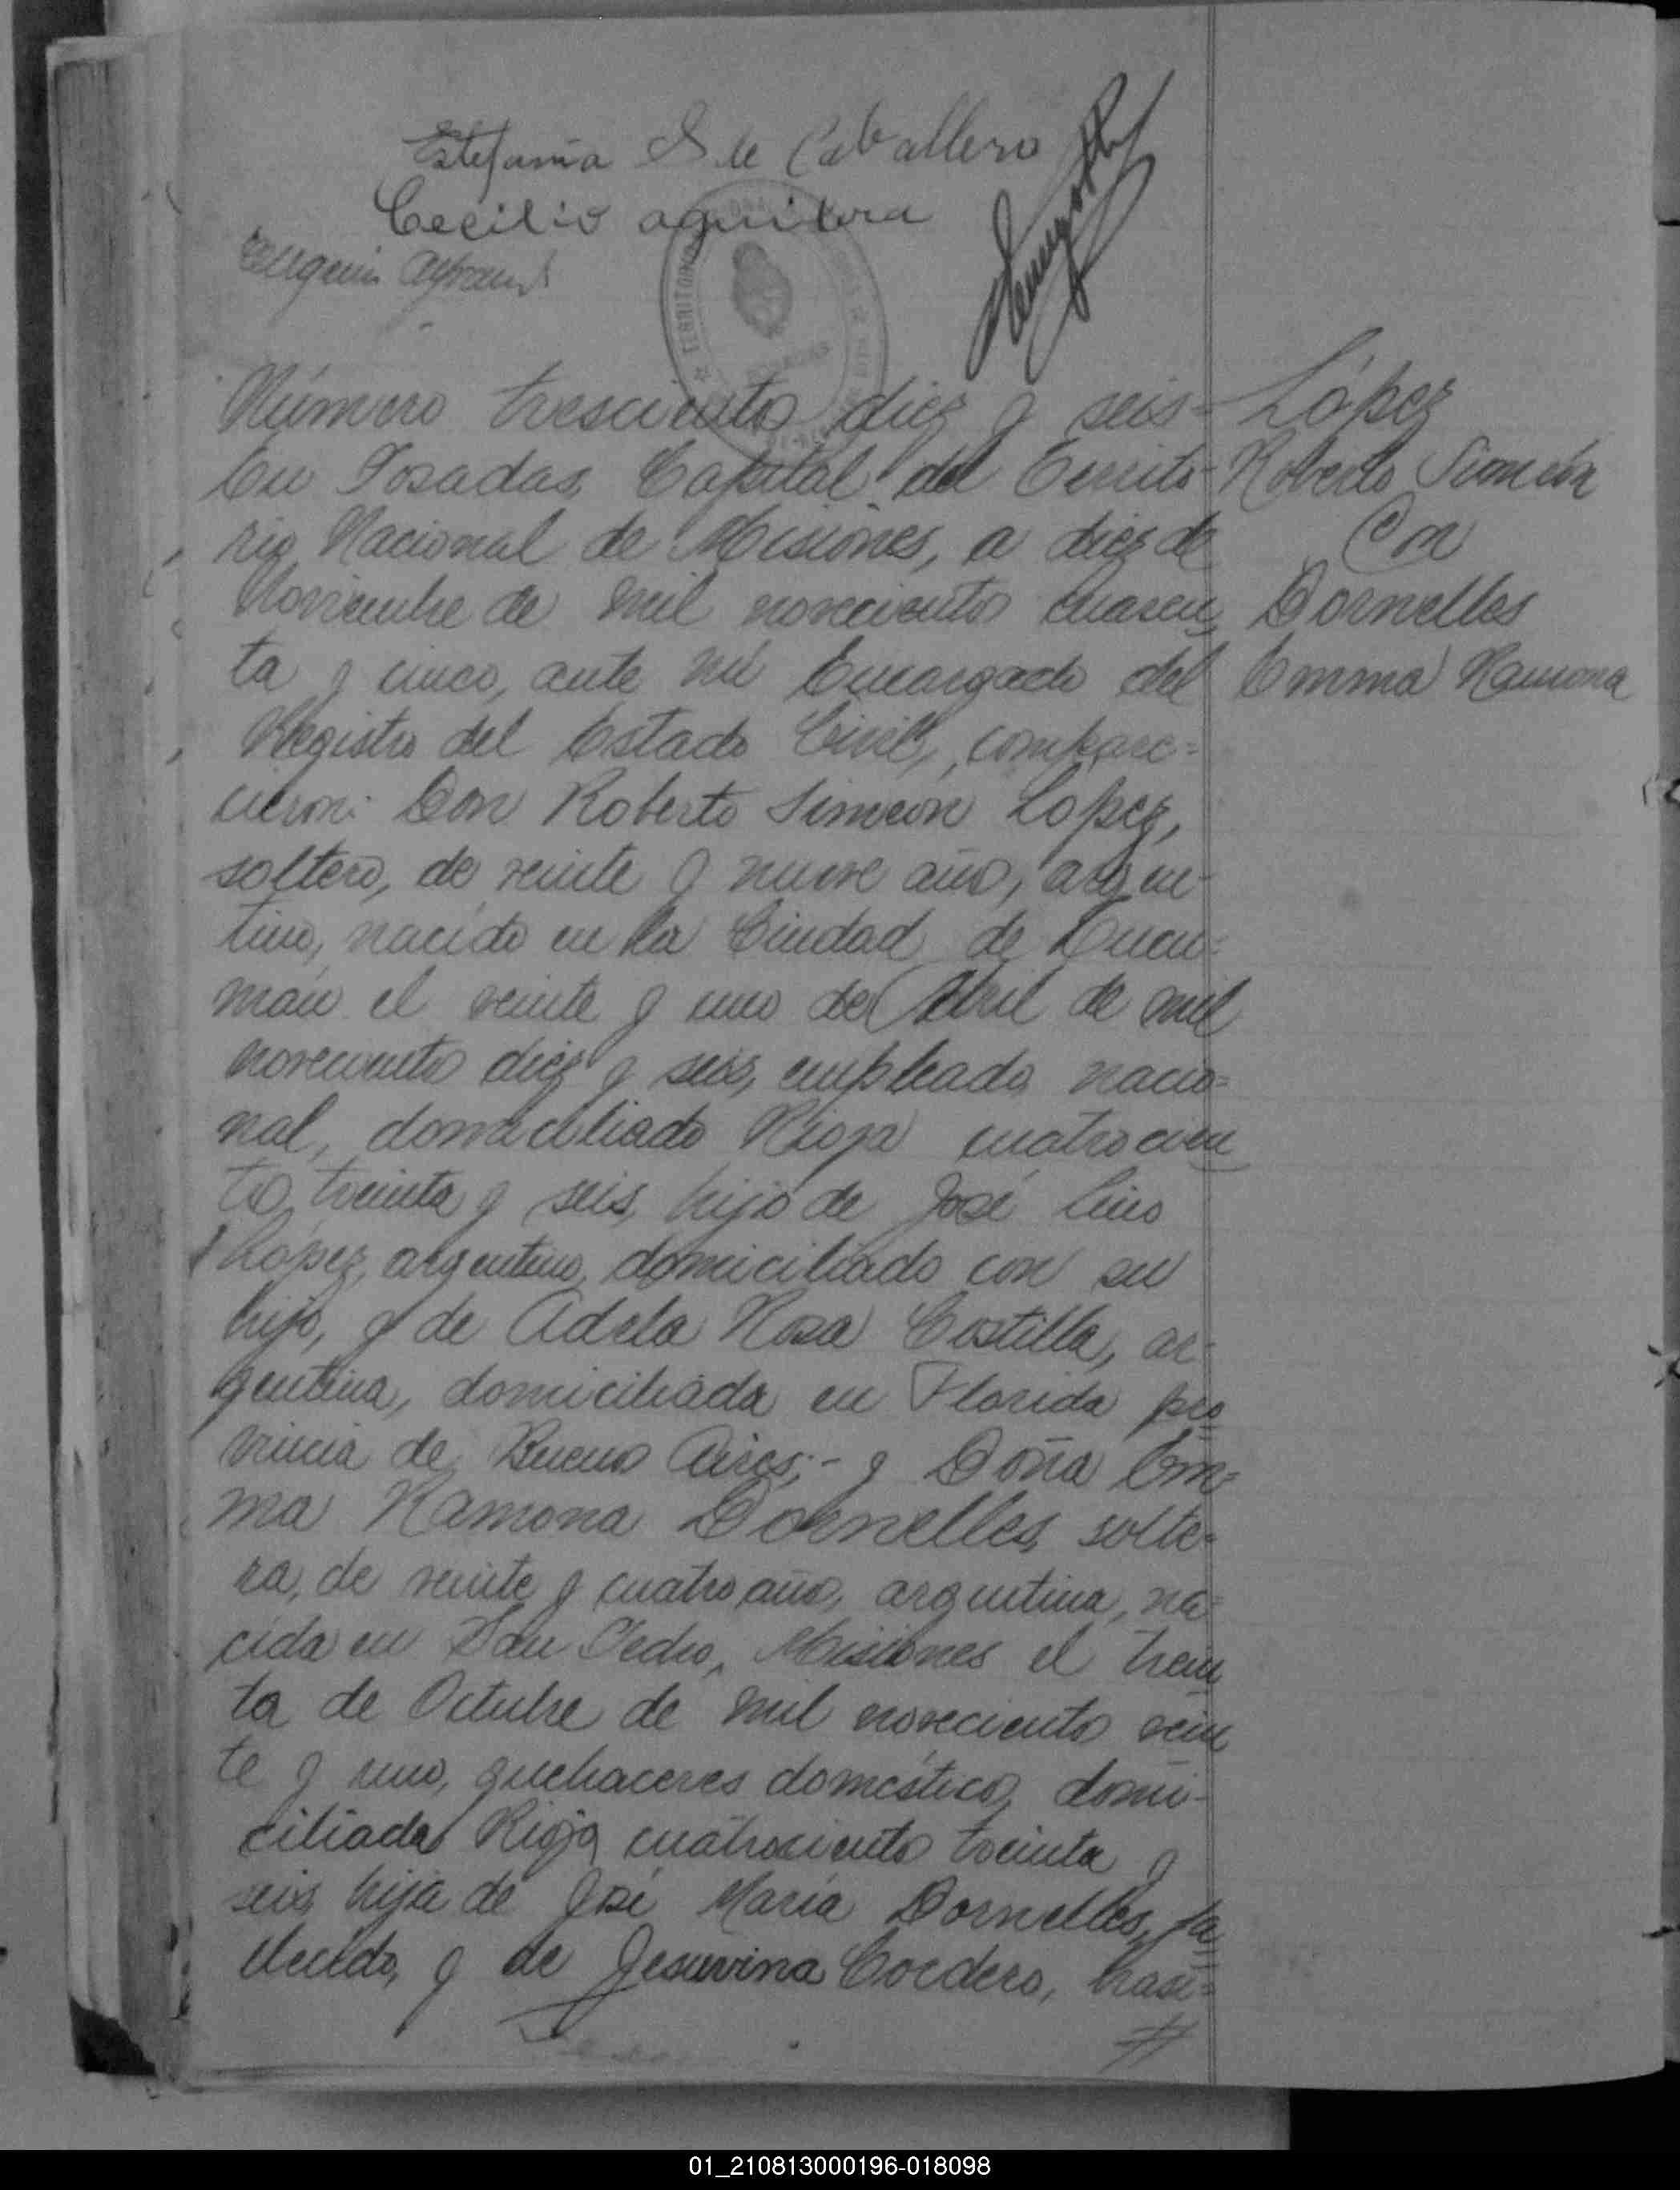 Estefania S. de Caballero
Cecilio aguilera
TERRITORIO
Número tresciento diez y seis-
En Posadas, Capital del Territo-
rio Nacional de Misiones, a diez de
Noviembre de mil novecientos cuaren
ta y cinco, ante mí Encargado del
Registro del Estado Civil, compare=
cieron: Don Roberto Simeón López,
soltero, de veinte y nueve años, argen-
tino, nacido en la Ciudad de Tucu=
mán el veinte y uno de Abril de mil
novecientos diez y seis, empleado nacio=
nal, domiciliado Rioja cuatrocien
tos treinta y seis, hijo de José Lino
López, argentino, domiciliado con su
hijo, y de Adela Rosa Costilla, ar-
gentina, domiciliada en Florida pro
vincia de Buenos Aires;- y Doña Em=
ma Ramona Dornelles, solte-
ra, de veinte y cuatro años, argentina, na=
cida en San Pedro, Misiones el trein
ta de Octubre de mil novecientos vein
te y uno, quehaceres domésticos, domi-
ciliada Rioja cuatrocientos treinta y
seis, hija de José María Dornelles, fa-
llecido, y de Jesuvina Cordero, brasi=
López
Roberto Simeón
Con
Dornelles
Emma Ramona
01_210813000196-018098